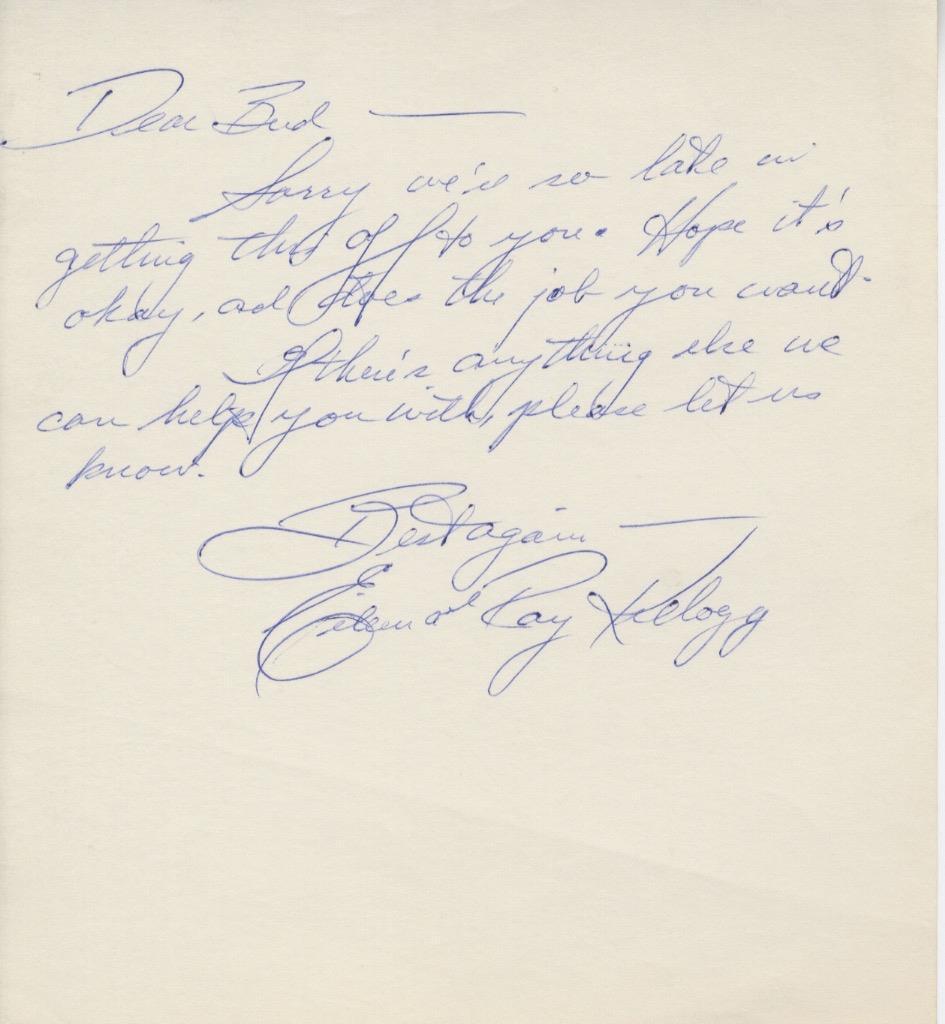 Dear Bud —
Sorry we're so late in
getting this off to you. Hope it's
okay, ad does the job you want.
If there's anything else we
can help you with, please let us
know.
Best again —
Eileen and Ray Kellogg